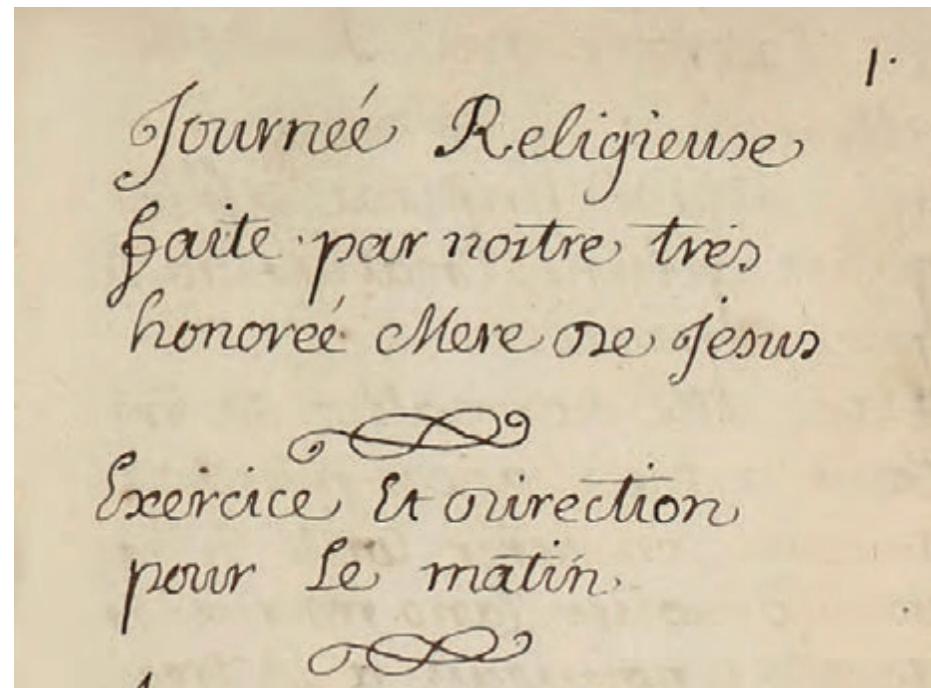 1.
Journeé Religieuse
faite par nostre trés
honoreé Mere De Jesus
Exercice Et Direction
pour Le matin.